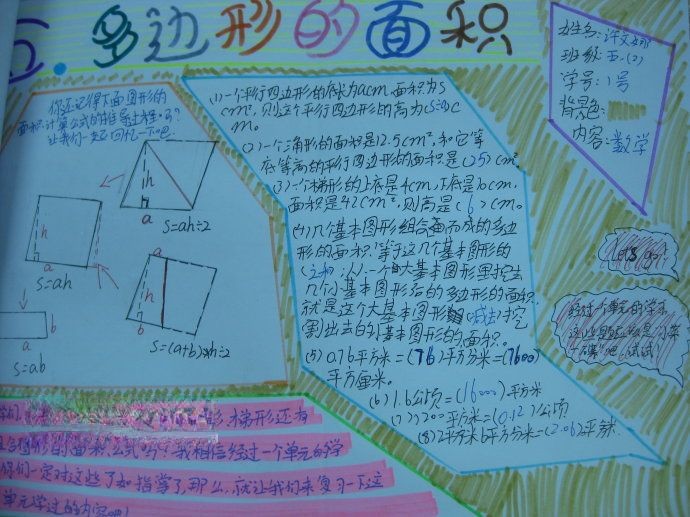 五.多边形的面积
你还记得下面图形的
面积计算公式的推导过程吗?
让我们一起回忆一下吧.
h
a
S=ah÷2
h
a
S=ah
a
h
b
S=(a+b)×h÷2
b
a
S=ab
(1)一个平行四边形的底长为acm,面积为S
cm²,则这个平行四边形的高为(S÷a)c
m。
()一个三角形的面积是12.5cm²,和它等
底等高的平行四边形的面积是(25)cm²
()一个梯形的上底是4cm,下底是10cm,
面积是42cm²,则高是(6)cm。
(4)几个基本图形组合而成的多边
形的面积,等于这几个基本图形的
(之和)一个大基本图形里挖去
几个小基本图形后的多边形的面积
就是这个大基本图形(减去)挖
割出去的小基本图形的面积。
(5)0.76平方米=(76)平方分米=(7600)
平方厘米。
(6)1.6公顷=(16000)平方米
(7)1200平方米=(0.12)公顷
(8)2平方米6平方分米=(2.06)平方米.
姓名:许文
班级:五.(2)
学号:1号
背景色:
内容:数学
Let's go!
经过一个单元的学习
这些题应该是小菜
一碟吧,试试
形,梯形还有
组合图形的面积公式吗?我相信经过一个单元的学
你们一定对这些了如指掌了,那么,就让我们来复习一下这
单元学过的内容吧!